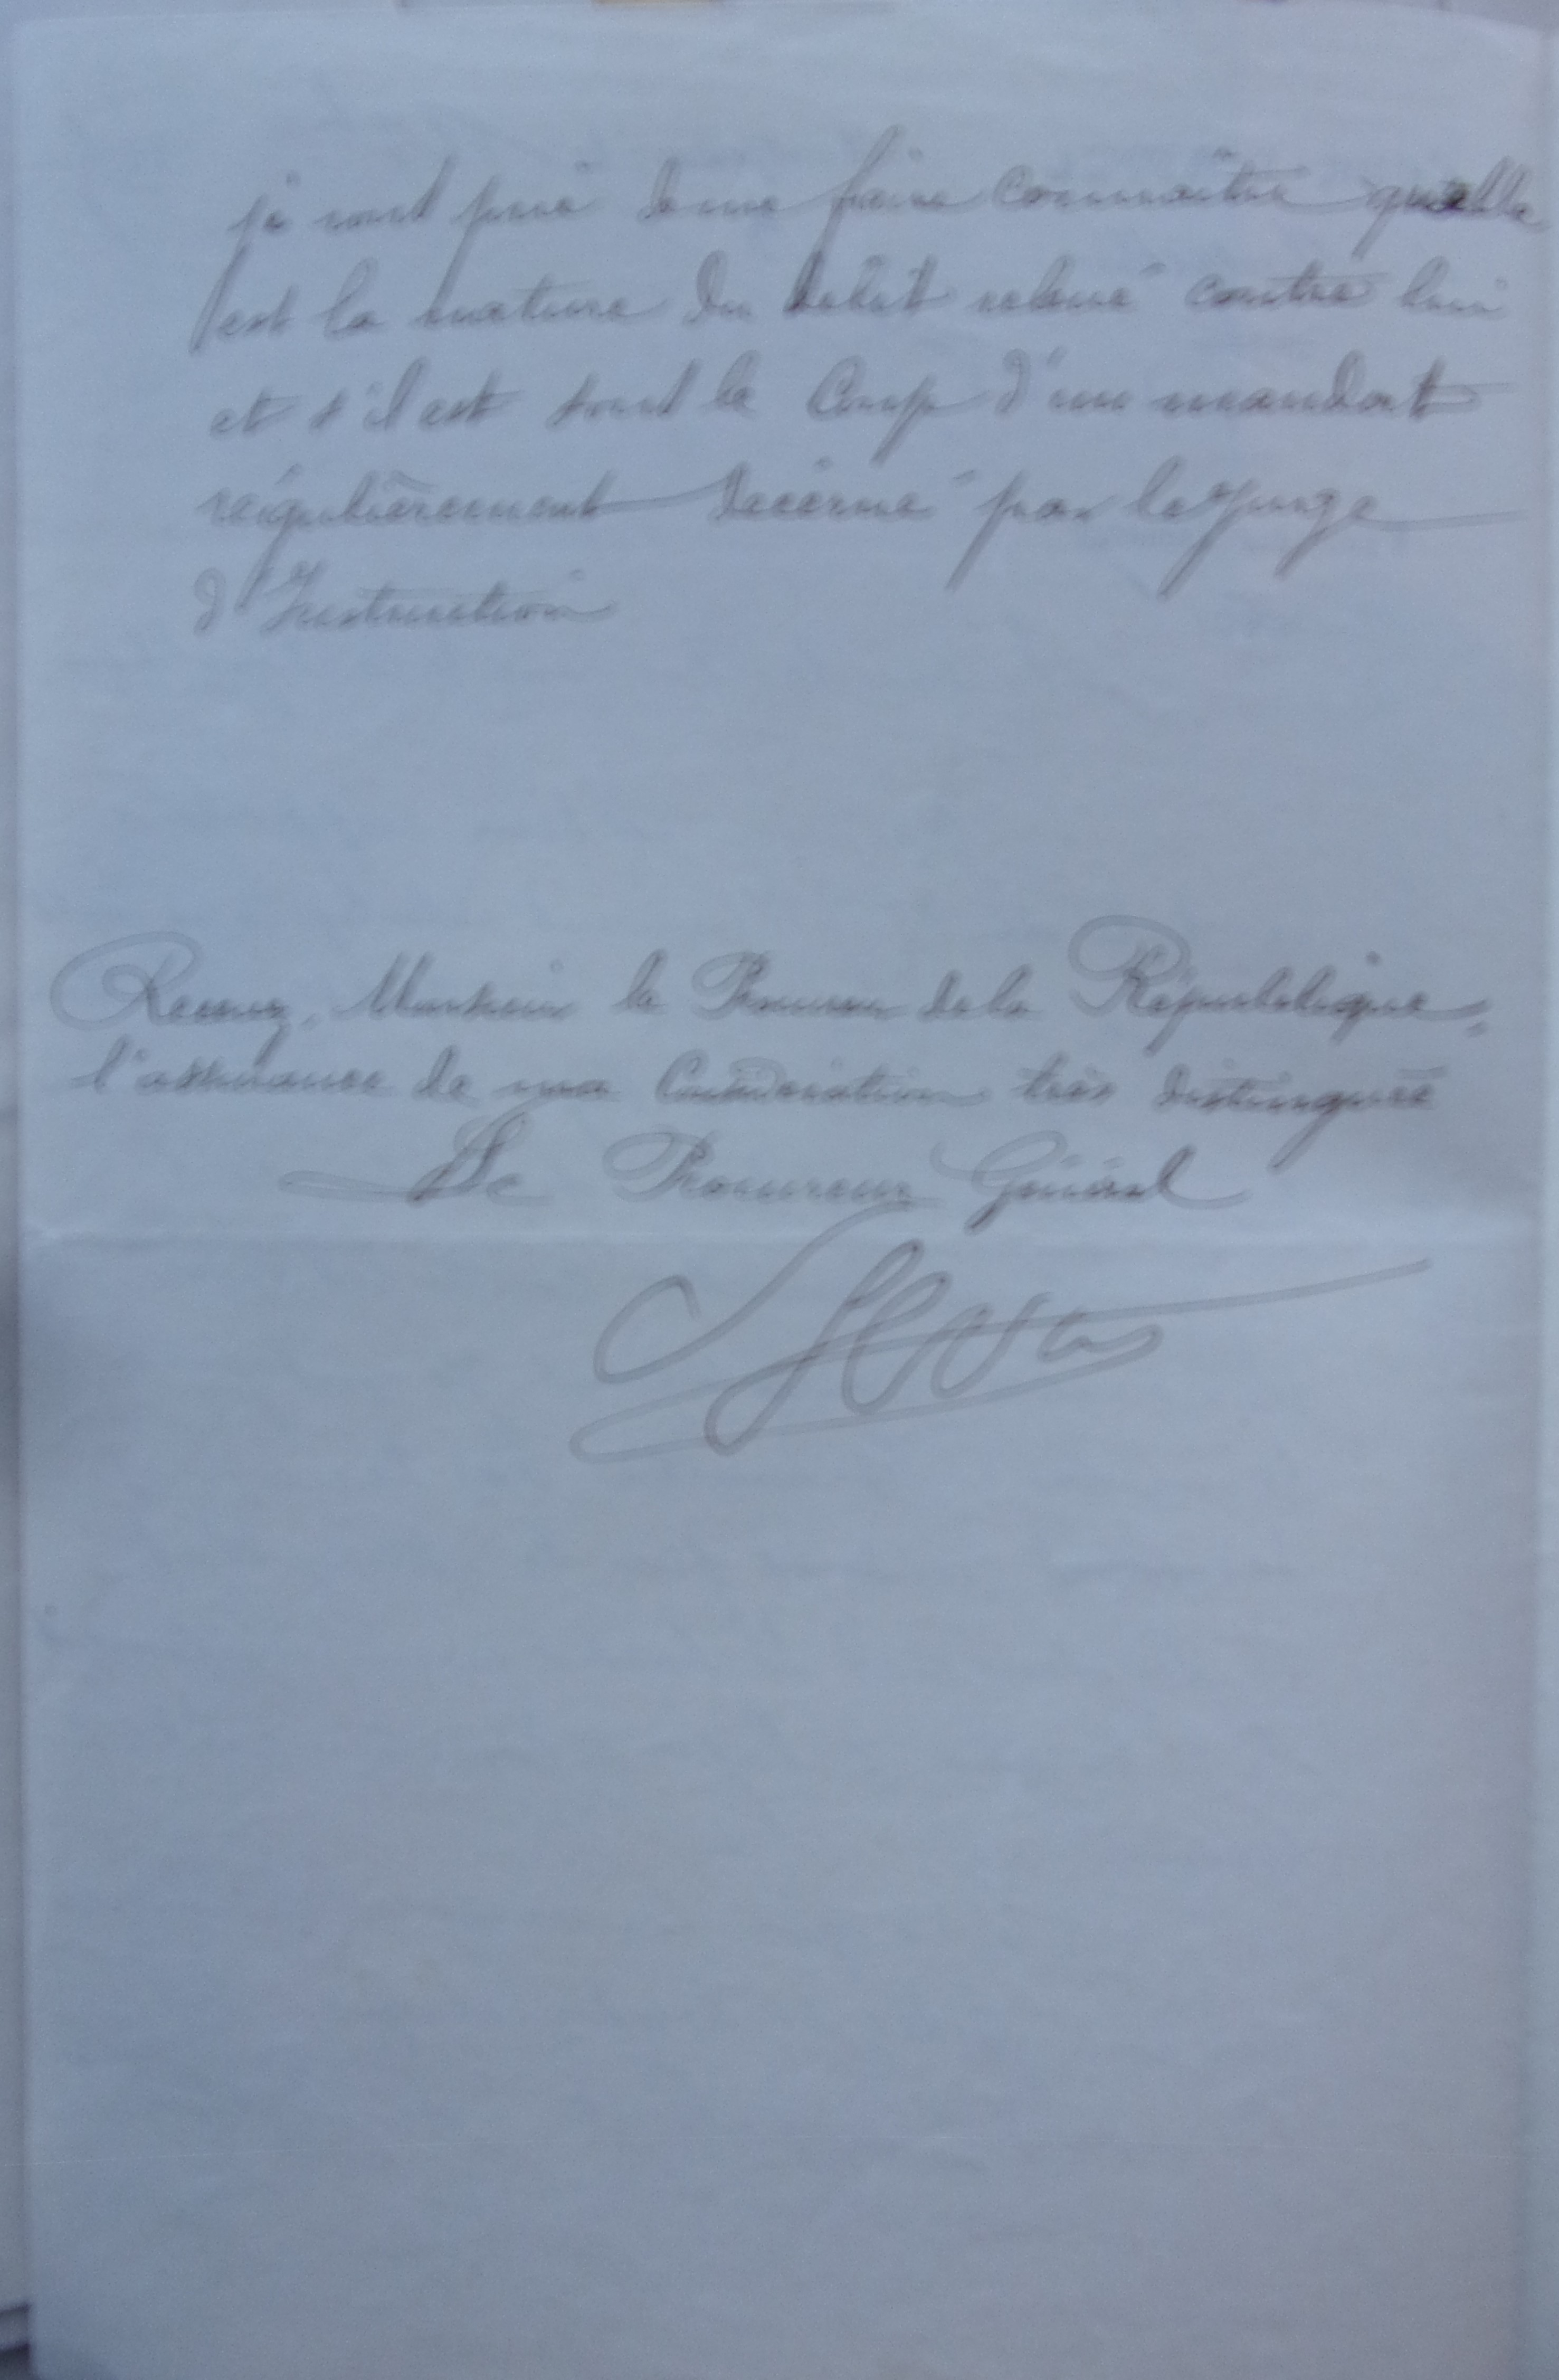 je vous prie de me faire connaître quelle
est la nature du délit relevé contre lui
et s'il est sous le coup d'un mandat
régulièrement décerné par le Juge
d'Instruction
Recevez, Monsieur le Procureur de la République,
l'assurance de ma Considération très distinguée
Le Procureur Général